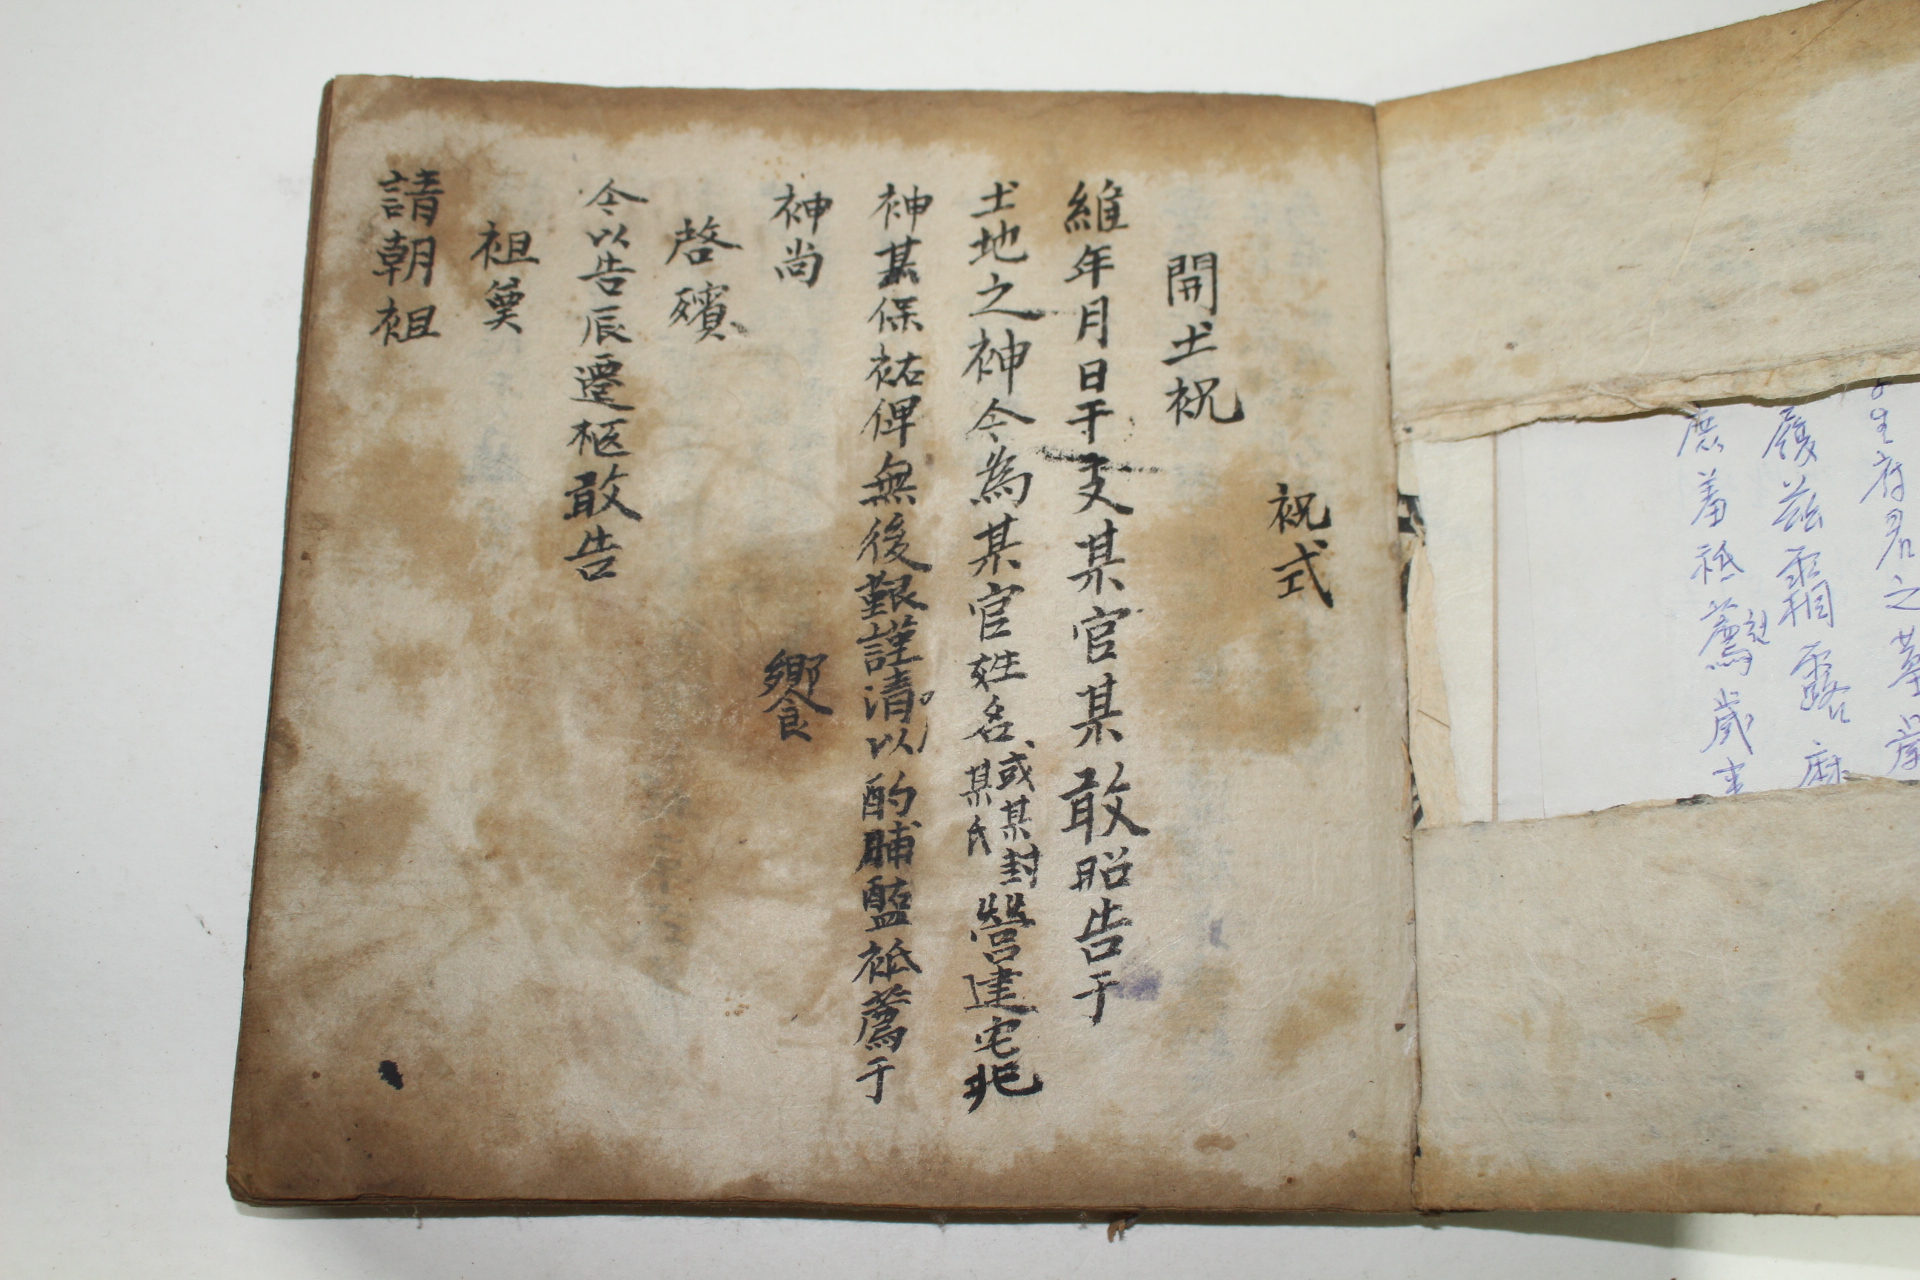 之墓
履茲霜露
羞祗薦歲
祝式
開土祝
維年月日干支某官某敢昭告于
土地之神今為某官姓名
或某封
某氏
營建宅兆
神其保祐俾無後艱謹以清酌脯醢祗薦于
神尚
饗
啓殯
今以吉辰遷柩敢告
祖奠
請朝祖